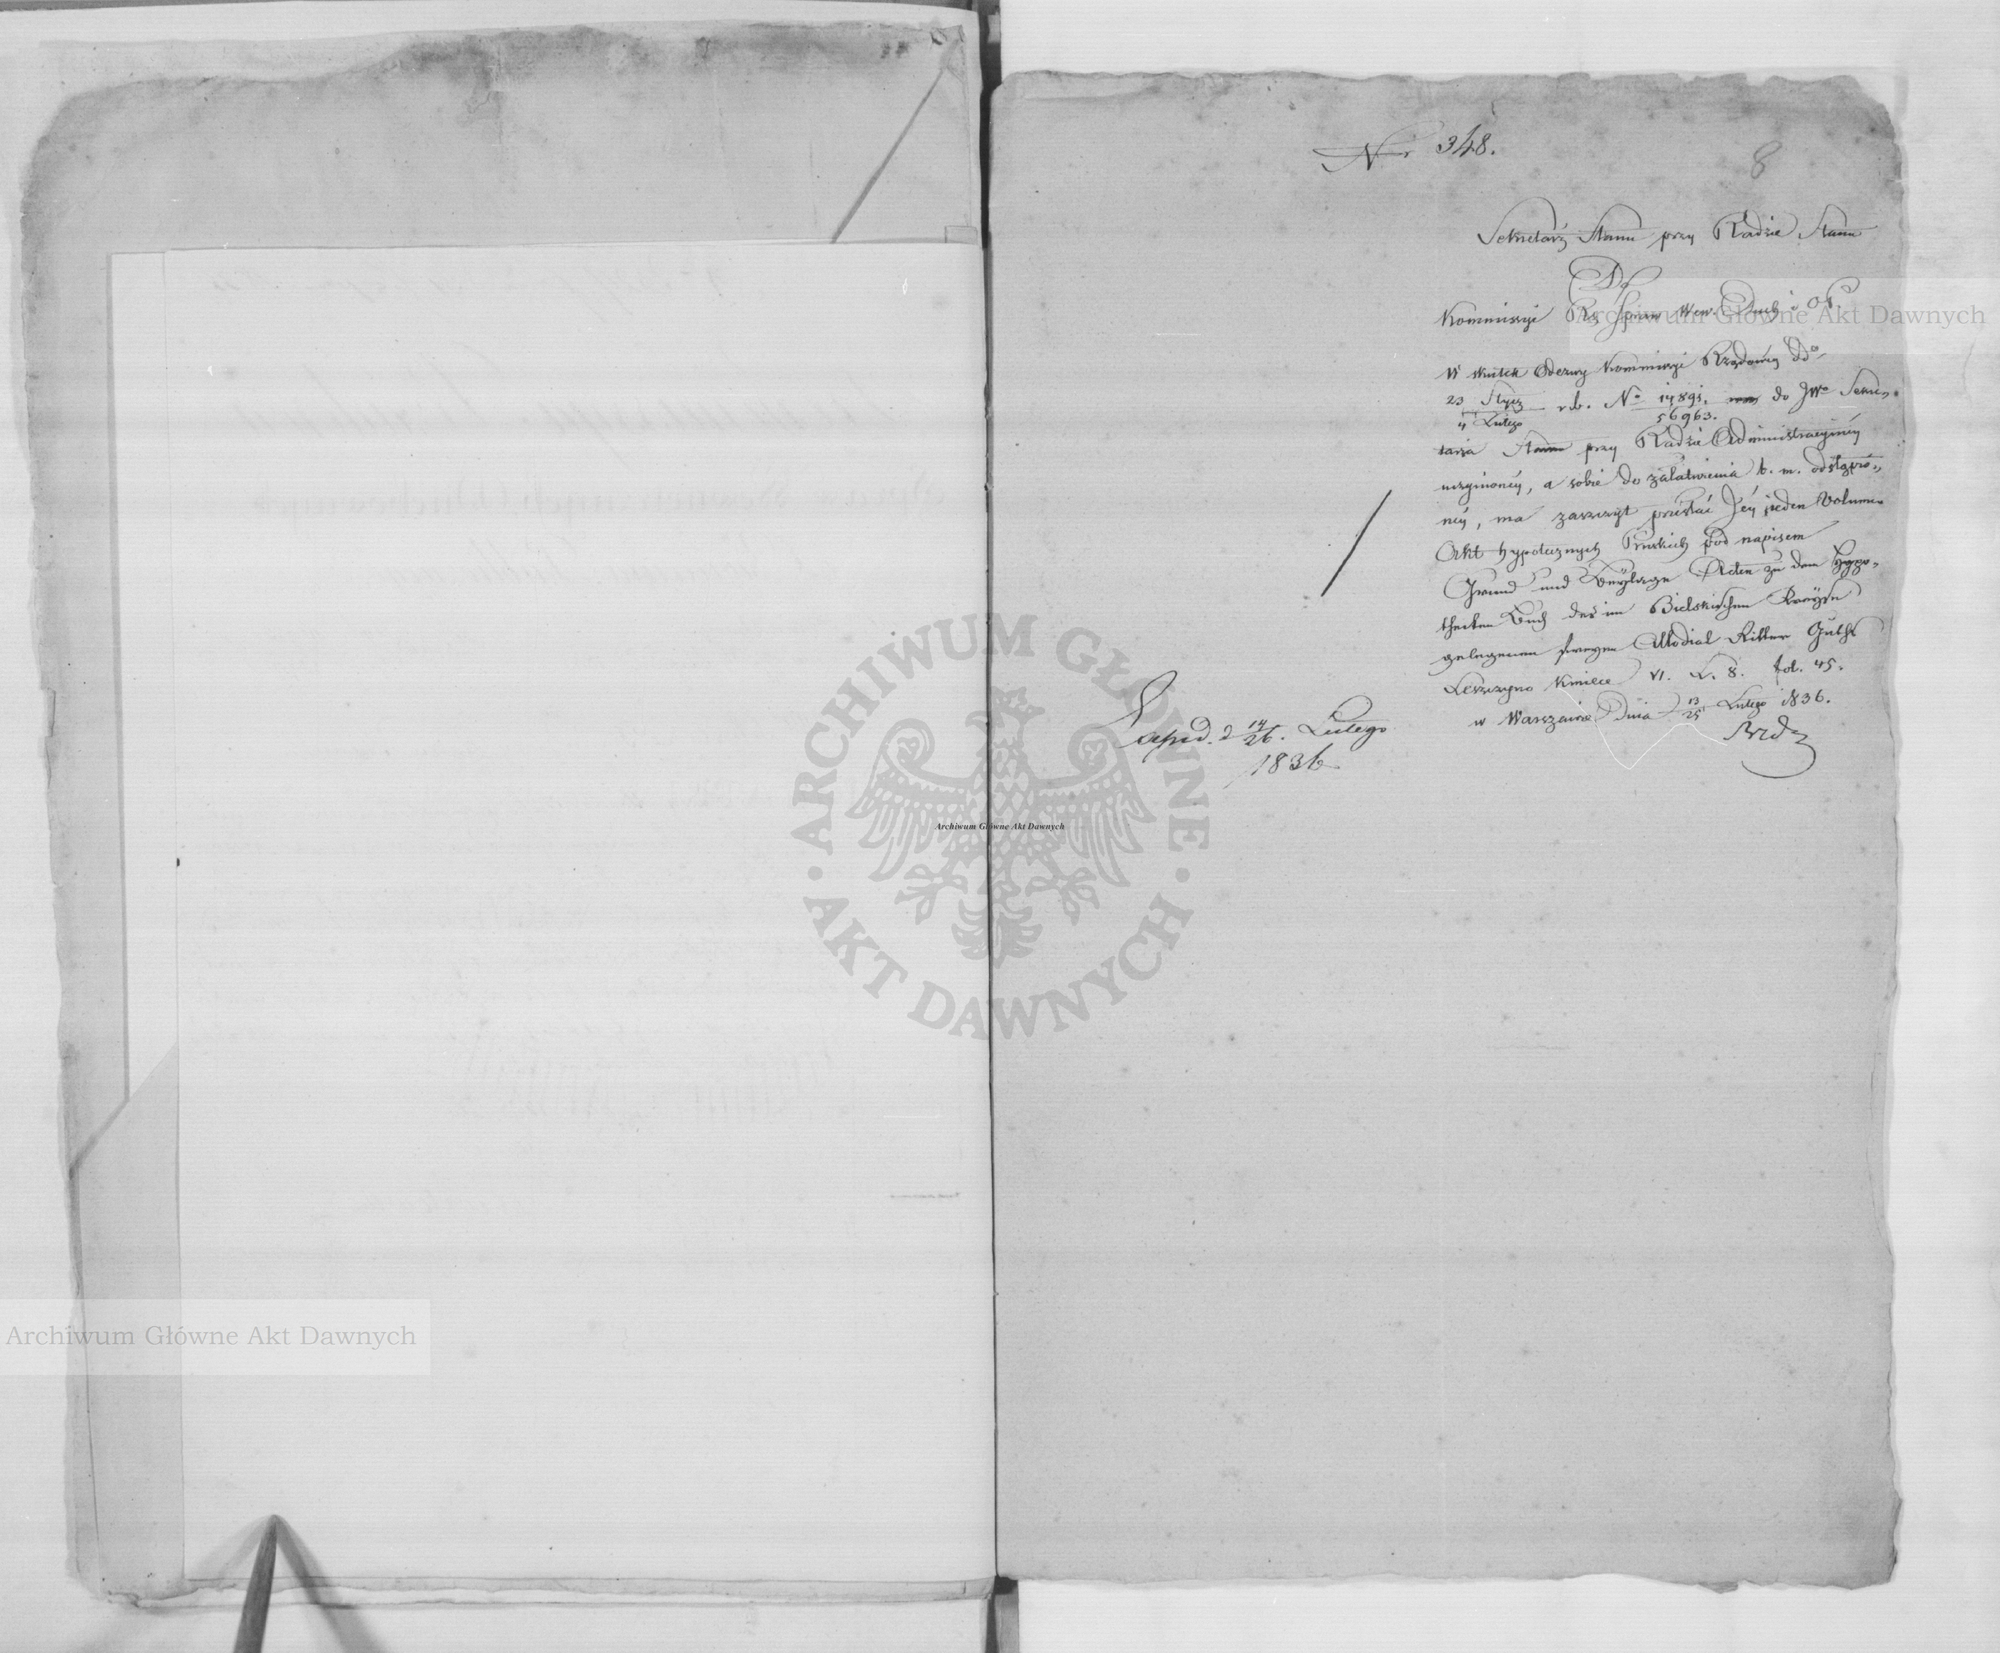 Nr 348.
8
Sekretarz Stanu przy Radzie Stanu
Do
Kommissyi Rz. Spraw Wew. Duch. i O. P.
W skutek Odezwy Kommissyi Rządowéy ddo
23 Stycz / 4 Lutego r. b. No 14891. / 56963. do JWo Sekre-
tarza Stanu przy Radzie Administracyjnéy
uczynionéy, a sobie do załatwienia b. m. odstąpio-
néy, ma zaszczyt przesłać Jéy jeden Volumen
Akt hypotecznych Pruskich pod napisem
Grund und Beylage Acten zu dem Hypo-
theken Buch des im Bielskischen Kreyse
gelegenen Allodial Ritter Guths
Leszczyno Kmiece VI. L. 8. fol. 45.
w Warszawie Dnia 13/25 Lutego 1836.
Exped. d 14/26. Lutego
1836
Archiwum Główne Akt Dawnych
ARCHIWUM GŁÓWNE · AKT DAWNYCH ·
Archiwum Główne Akt Dawnych
Archiwum Główne Akt Dawnych